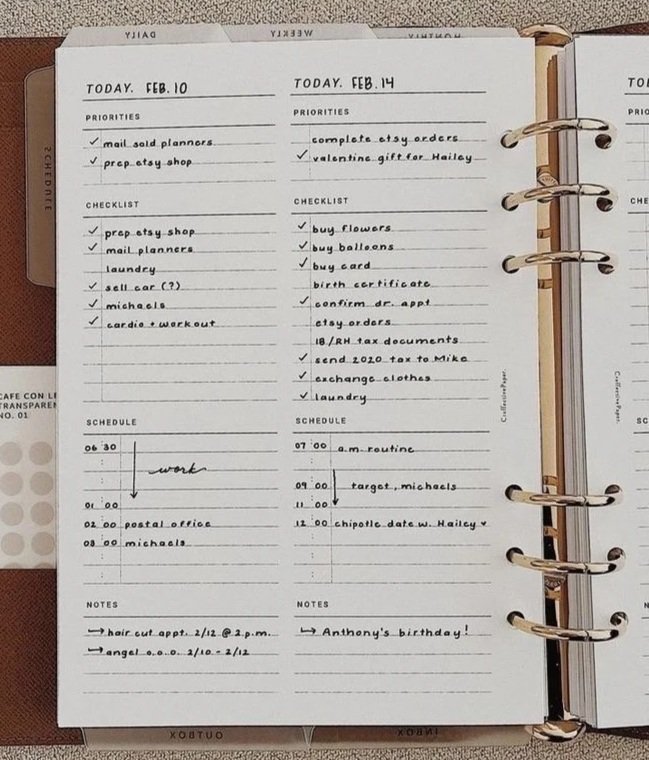 DAILY
WEEKLY
MONTHLY
SCHEDULE
TODAY. FEB. 10
PRIORITIES
✓ mail sold planners
✓ prep etsy shop
CHECKLIST
✓ prep etsy shop
✓ mail planners
laundry
✓ sell car (?)
✓ michaels
✓ cardio + workout
SCHEDULE
06:30
work
01:00
02:00 postal office
03:00 michaels
NOTES
→ hair cut appt. 2/12 @ 2 p.m.
→ angel o.o.o. 2/10 - 2/12
TODAY. FEB. 14
PRIORITIES
complete etsy orders
✓ valentine gift for Hailey
CHECKLIST
✓ buy flowers
✓ buy balloons
✓ buy card
birth certificate
✓ confirm dr. appt
etsy orders
✓ send 2020 tax to Mike
✓ exchange clothes
✓ laundry
SCHEDULE
07:00 a.m. routine
09:00 target, michaels
11:00
12:00 chipotle date w. Hailey ♥
NOTES
→ Anthony's birthday!
CAFE CON LE
TRANSPAREN
NO. 01
OUTBOX
INBOX